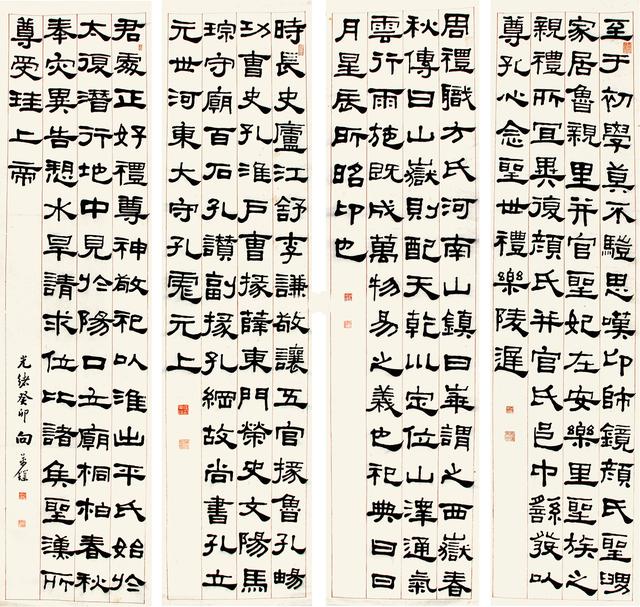 至于初學莫不驩思嘆卬師鏡顏氏聖舅
家居魯親里并官聖妃在安樂里聖族之
親禮所宜異復顏氏并官氏邑中繇發以
尊孔心念聖世禮樂陵遲
周禮職方氏河南山鎮曰崋謂之西嶽春
秋傳曰山嶽則配天乾巛定位山澤通氣
雲行雨施既成萬物易之義也祀典曰日
月星辰所昭卬也
時長史廬江舒李謙敬讓五官掾魯孔暘
功曹史孔淮戶曹掾薛東門榮史文陽馬
琮守廟百石孔讚副掾孔綱故尚書孔立
元世河東大守孔彪元上
君處正好禮尊神敬祀以淮出平氏始於
太復潛行地中見於陽口立廟桐柏春秋
奉灾異告愬水旱請求位比諸侯聖漢所
尊受珪上帝
光緒癸卯向萬鑅